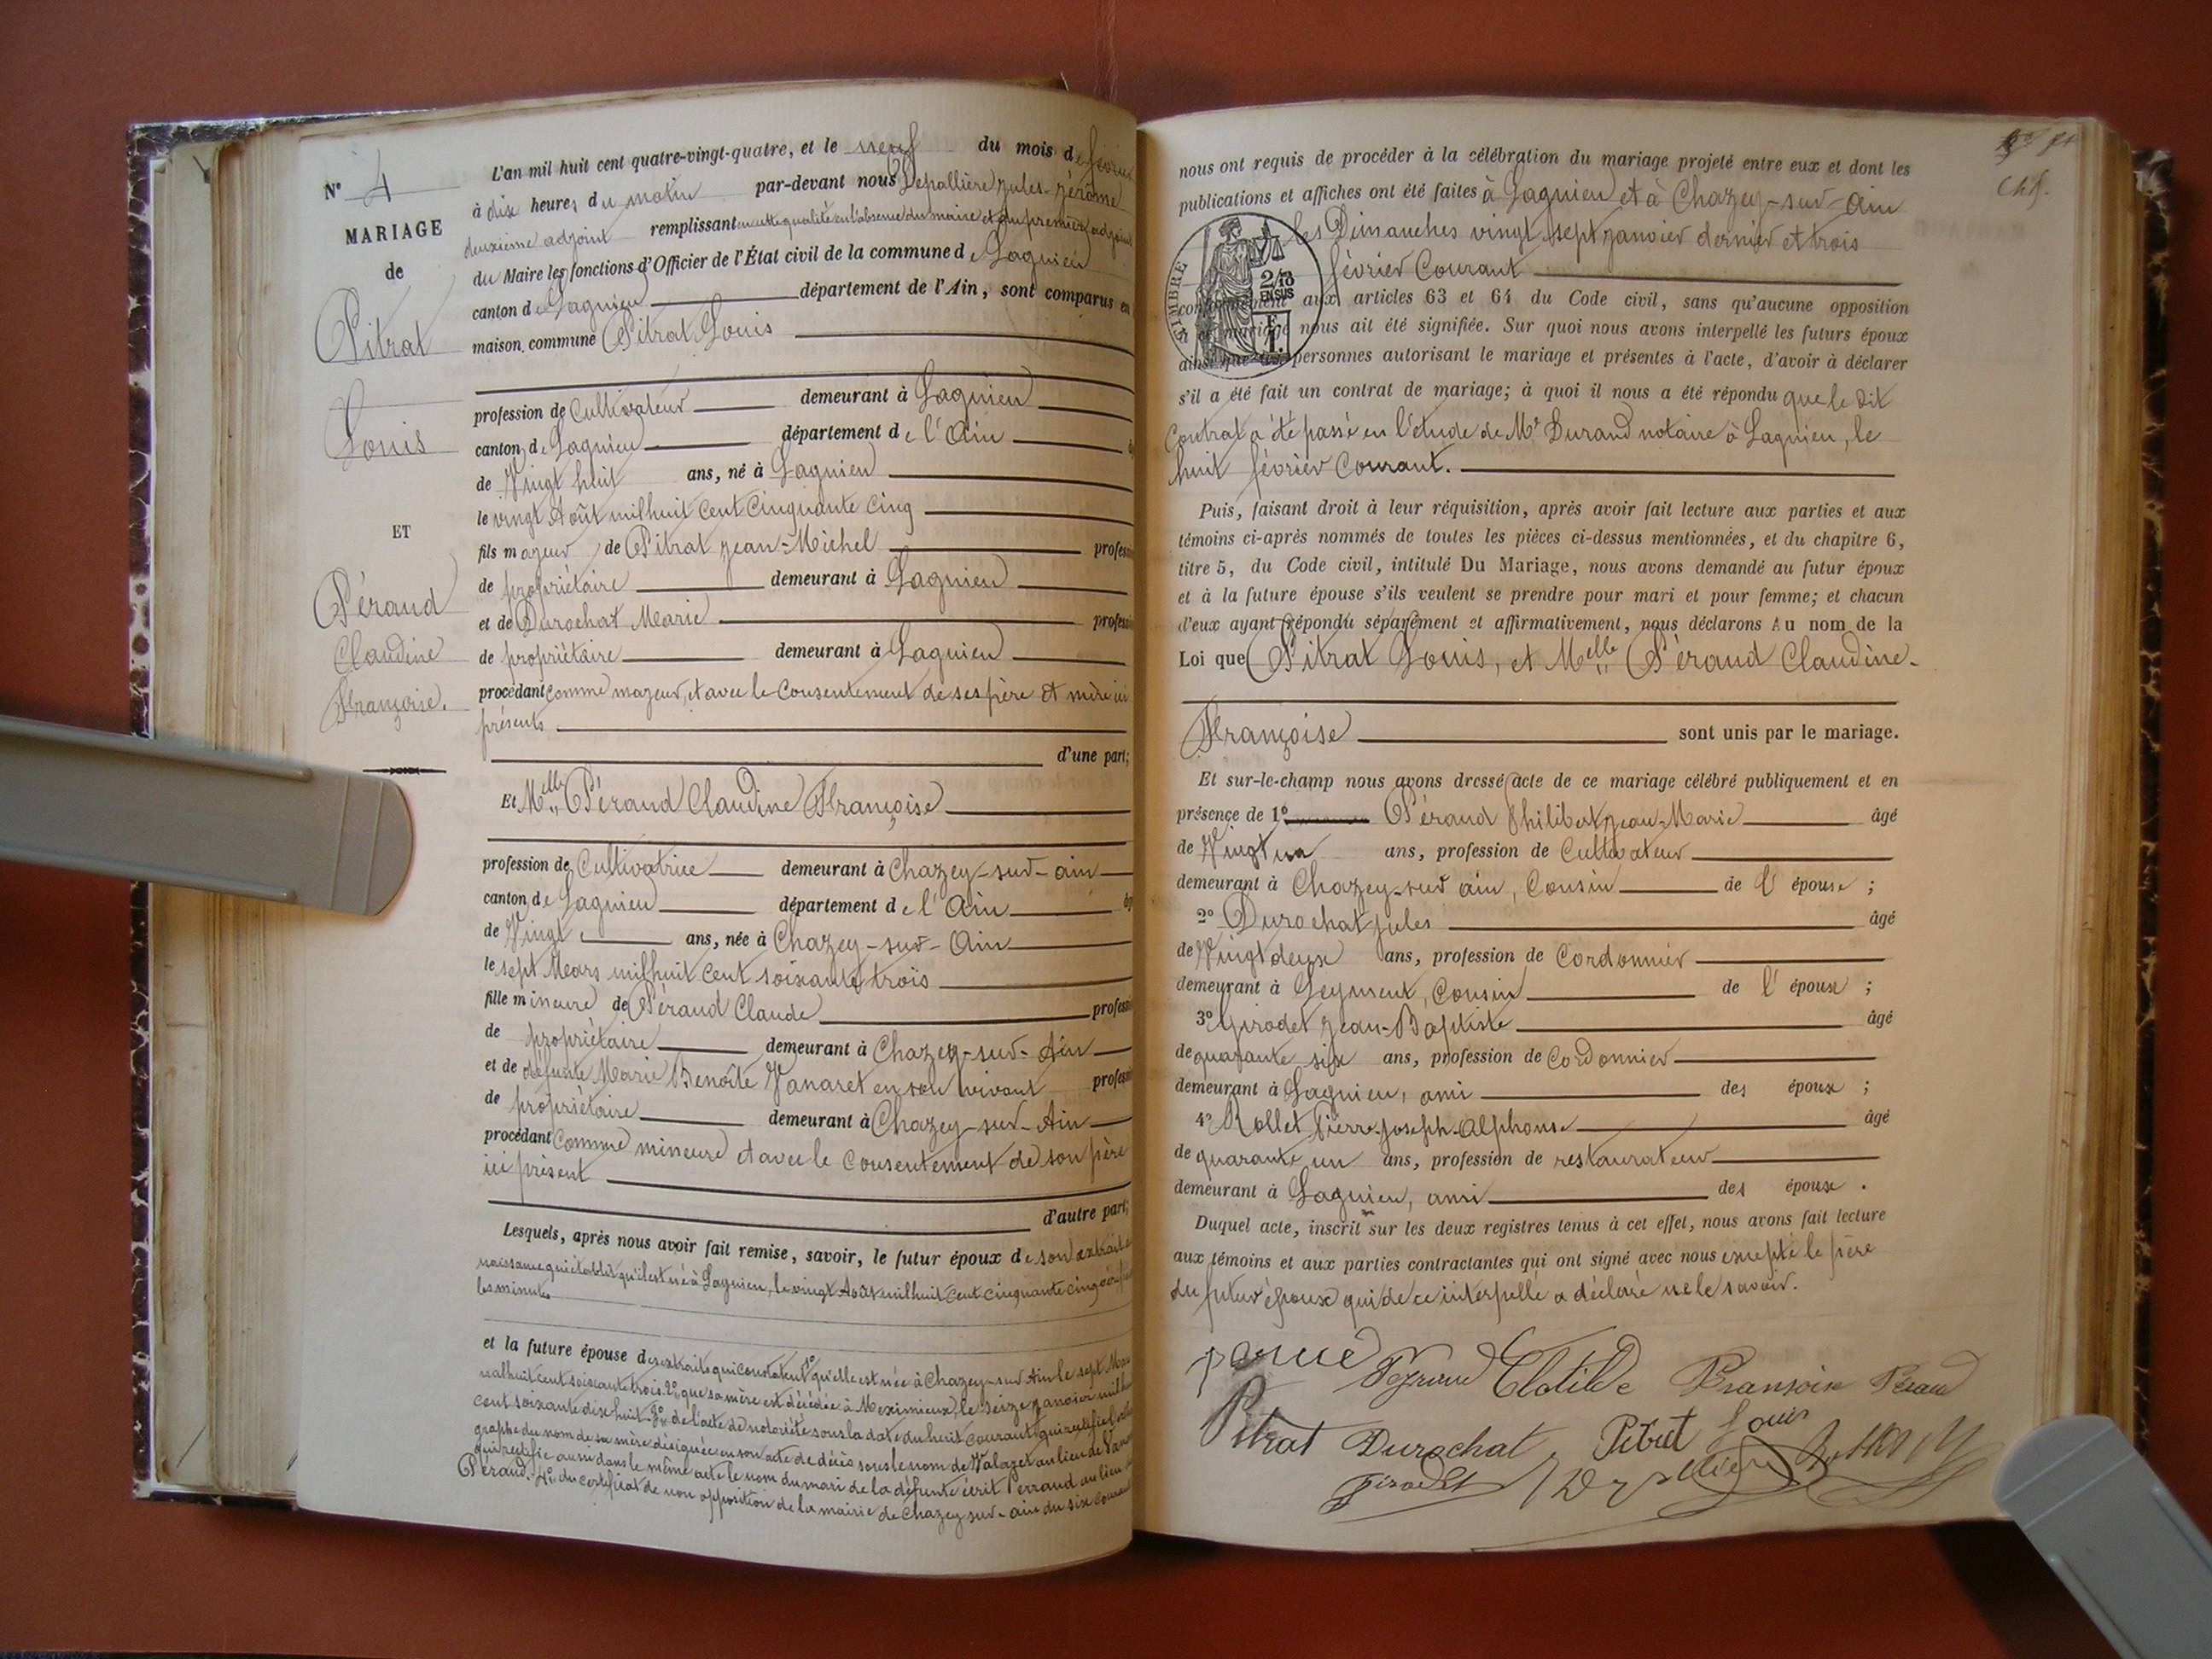 N° 4
MARIAGE
de
Pitrat
Louis
ET
Péraud
Claudine
Françoise.
L'an mil huit cent quatre-vingt-quatre, et le neuf du mois de février
à dix heures du matin par-devant nous Depallière Jules-Jérôme
deuxième adjoint remplissant en cette qualité en l'absence du maire et du premier adjoint
du Maire les fonctions d'Officier de l'État civil de la commune de Lagnieu
canton de Lagnieu département de l'Ain, sont comparus en
maison commune Pitrat Louis
profession de Cultivateur demeurant à Lagnieu
canton de Lagnieu département de l'Ain
de Vingt huit ans, né à Lagnieu
le vingt Août mil huit cent cinquante cinq
fils majeur de Pitrat Jean-Michel profession
de propriétaire demeurant à Lagnieu
et de Durochat Marie profession
de propriétaire demeurant à Lagnieu
procédant comme majeur, et avec le consentement de ses père et mère ici
présents
d'une part;
Et Melle Péraud Claudine Françoise
profession de Cultivatrice demeurant à Chazey-sur-ain
canton de Lagnieu département de l'Ain
de Vingt ans, née à Chazey-sur-Ain
le sept Mars mil huit cent soixante trois
fille mineure de Péraud Claude profession
de propriétaire demeurant à Chazey-sur-Ain
et de défunte Marie Benoîte Vanaret en son vivant profession
de propriétaire demeurant à Chazey-sur-Ain
procédant comme mineure et avec le consentement de son père
ici présent
d'autre part;
Lesquels, après nous avoir fait remise, savoir, le futur époux de son extrait de
naissance qui établit qu'il est né à Lagnieu, le vingt Août mil huit cent cinquante cinq
les minutes
et la future épouse des extraits qui constatent 1° qu'elle est née à Chazey-sur-Ain le sept Mars
mil huit cent soixante trois. 2° que sa mère est décédée à Meximieux, le seize janvier mil huit
cent soixante dix huit. 3° de l'acte de notoriété sous la date du huit courant qui rectifie l'ortho
graphe du nom de sa mère désignée en son acte de décès sous le nom de Valazet au lieu de Vanaret
qui rectifie aussi dans le même acte le nom du mari de la défunte écrit Perraud au lieu de
Péraud. 4° du certificat de non opposition de la mairie de Chazey-sur-ain du six courant
nous ont requis de procéder à la célébration du mariage projeté entre eux et dont les
publications et affiches ont été faites à Lagnieu et à Chazey-sur-Ain
les Dimanches vingt sept janvier dernier et trois
février Courant
TIMBRE
2/10
EN SUS
F.
1.
conformément aux articles 63 et 64 du Code civil, sans qu'aucune opposition
à ce mariage nous ait été signifiée. Sur quoi nous avons interpellé les futurs époux
ainsi que les personnes autorisant le mariage et présentes à l'acte, d'avoir à déclarer
s'il a été fait un contrat de mariage; à quoi il nous a été répondu que le dit
Contrat a été passé en l'étude de Me Durand notaire à Lagnieu, le
huit février Courant.
Puis, faisant droit à leur réquisition, après avoir fait lecture aux parties et aux
témoins ci-après nommés de toutes les pièces ci-dessus mentionnées, et du chapitre 6,
titre 5, du Code civil, intitulé Du Mariage, nous avons demandé au futur époux
et à la future épouse s'ils veulent se prendre pour mari et pour femme; et chacun
d'eux ayant répondu séparément et affirmativement, nous déclarons Au nom de la
Loi que Pitrat Louis, et Melle Péraud Claudine-
Françoise sont unis par le mariage.
Et sur-le-champ nous avons dressé acte de ce mariage célébré publiquement et en
présence de 1° Péraud Philibert Jean-Marie âgé
de Vingt un ans, profession de Cultivateur
demeurant à Chazey-sur ain, Cousin de l'épouse;
2° Durochat Jules âgé
de Vingt deux ans, profession de Cordonnier
demeurant à Leyment, Cousin de l'époux;
3° Girodet Jean-Baptiste âgé
de quarante six ans, profession de Cordonnier
demeurant à Lagnieu, ami des époux;
4° Rollet Pierre-Joseph-Alphonse âgé
de quarante un ans, profession de restaurateur
demeurant à Lagnieu, ami des époux.
Duquel acte, inscrit sur les deux registres tenus à cet effet, nous avons fait lecture
aux témoins et aux parties contractantes qui ont signé avec nous excepté le père
du futur époux qui de ce interpellé a déclaré ne le savoir.
Clotilde Fransoise Péraud
Pitrat Durochat Pitrat Louis
Girodet